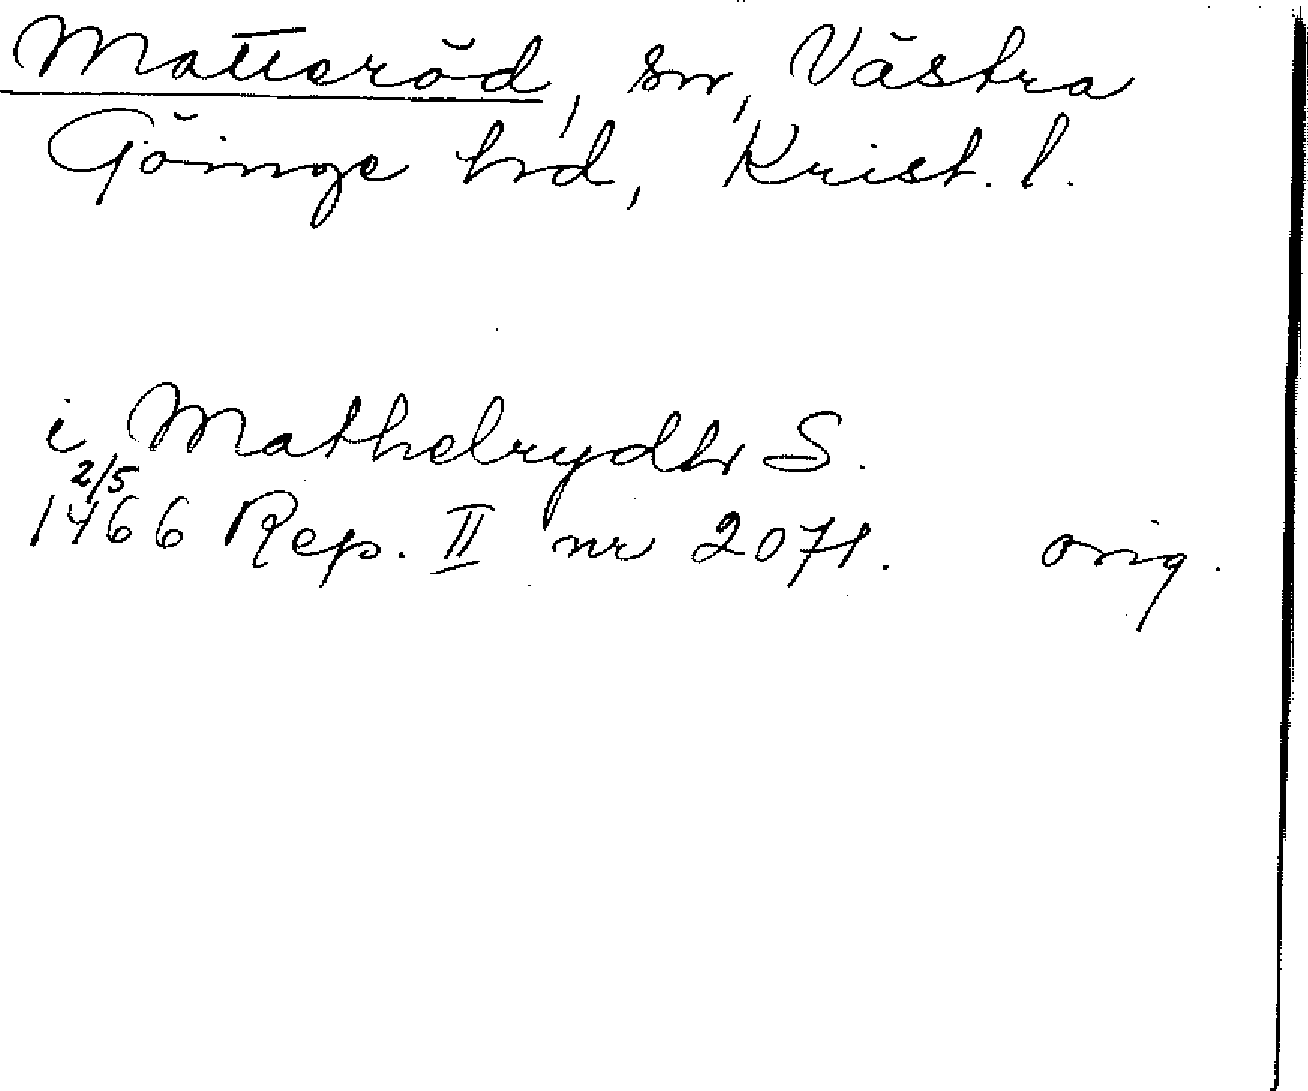 Matteröd, sn, Västra
Göinge hd, Krist. l.
i Mathelrydh S.
2/5
1466 Rep. II nr 2071. orig.